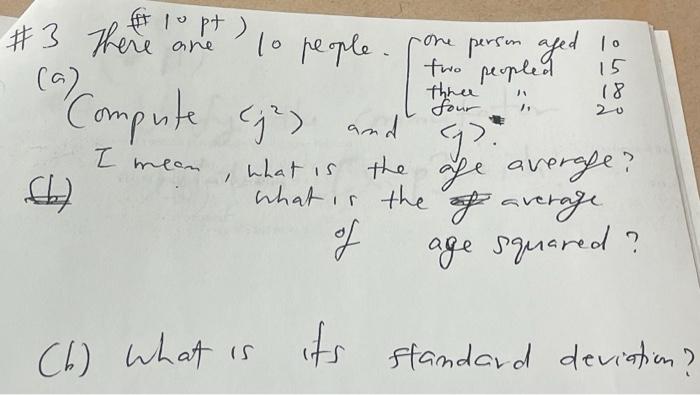 #3 (# 10 pt)
There are 10 people. one person aged 10
two peopled 15
three " 18
four " 20
(a)
Compute <j²> and <j>.
I mean, what is the age average?
(b) what is the average
of age squared?
(b) What is its standard deviation?